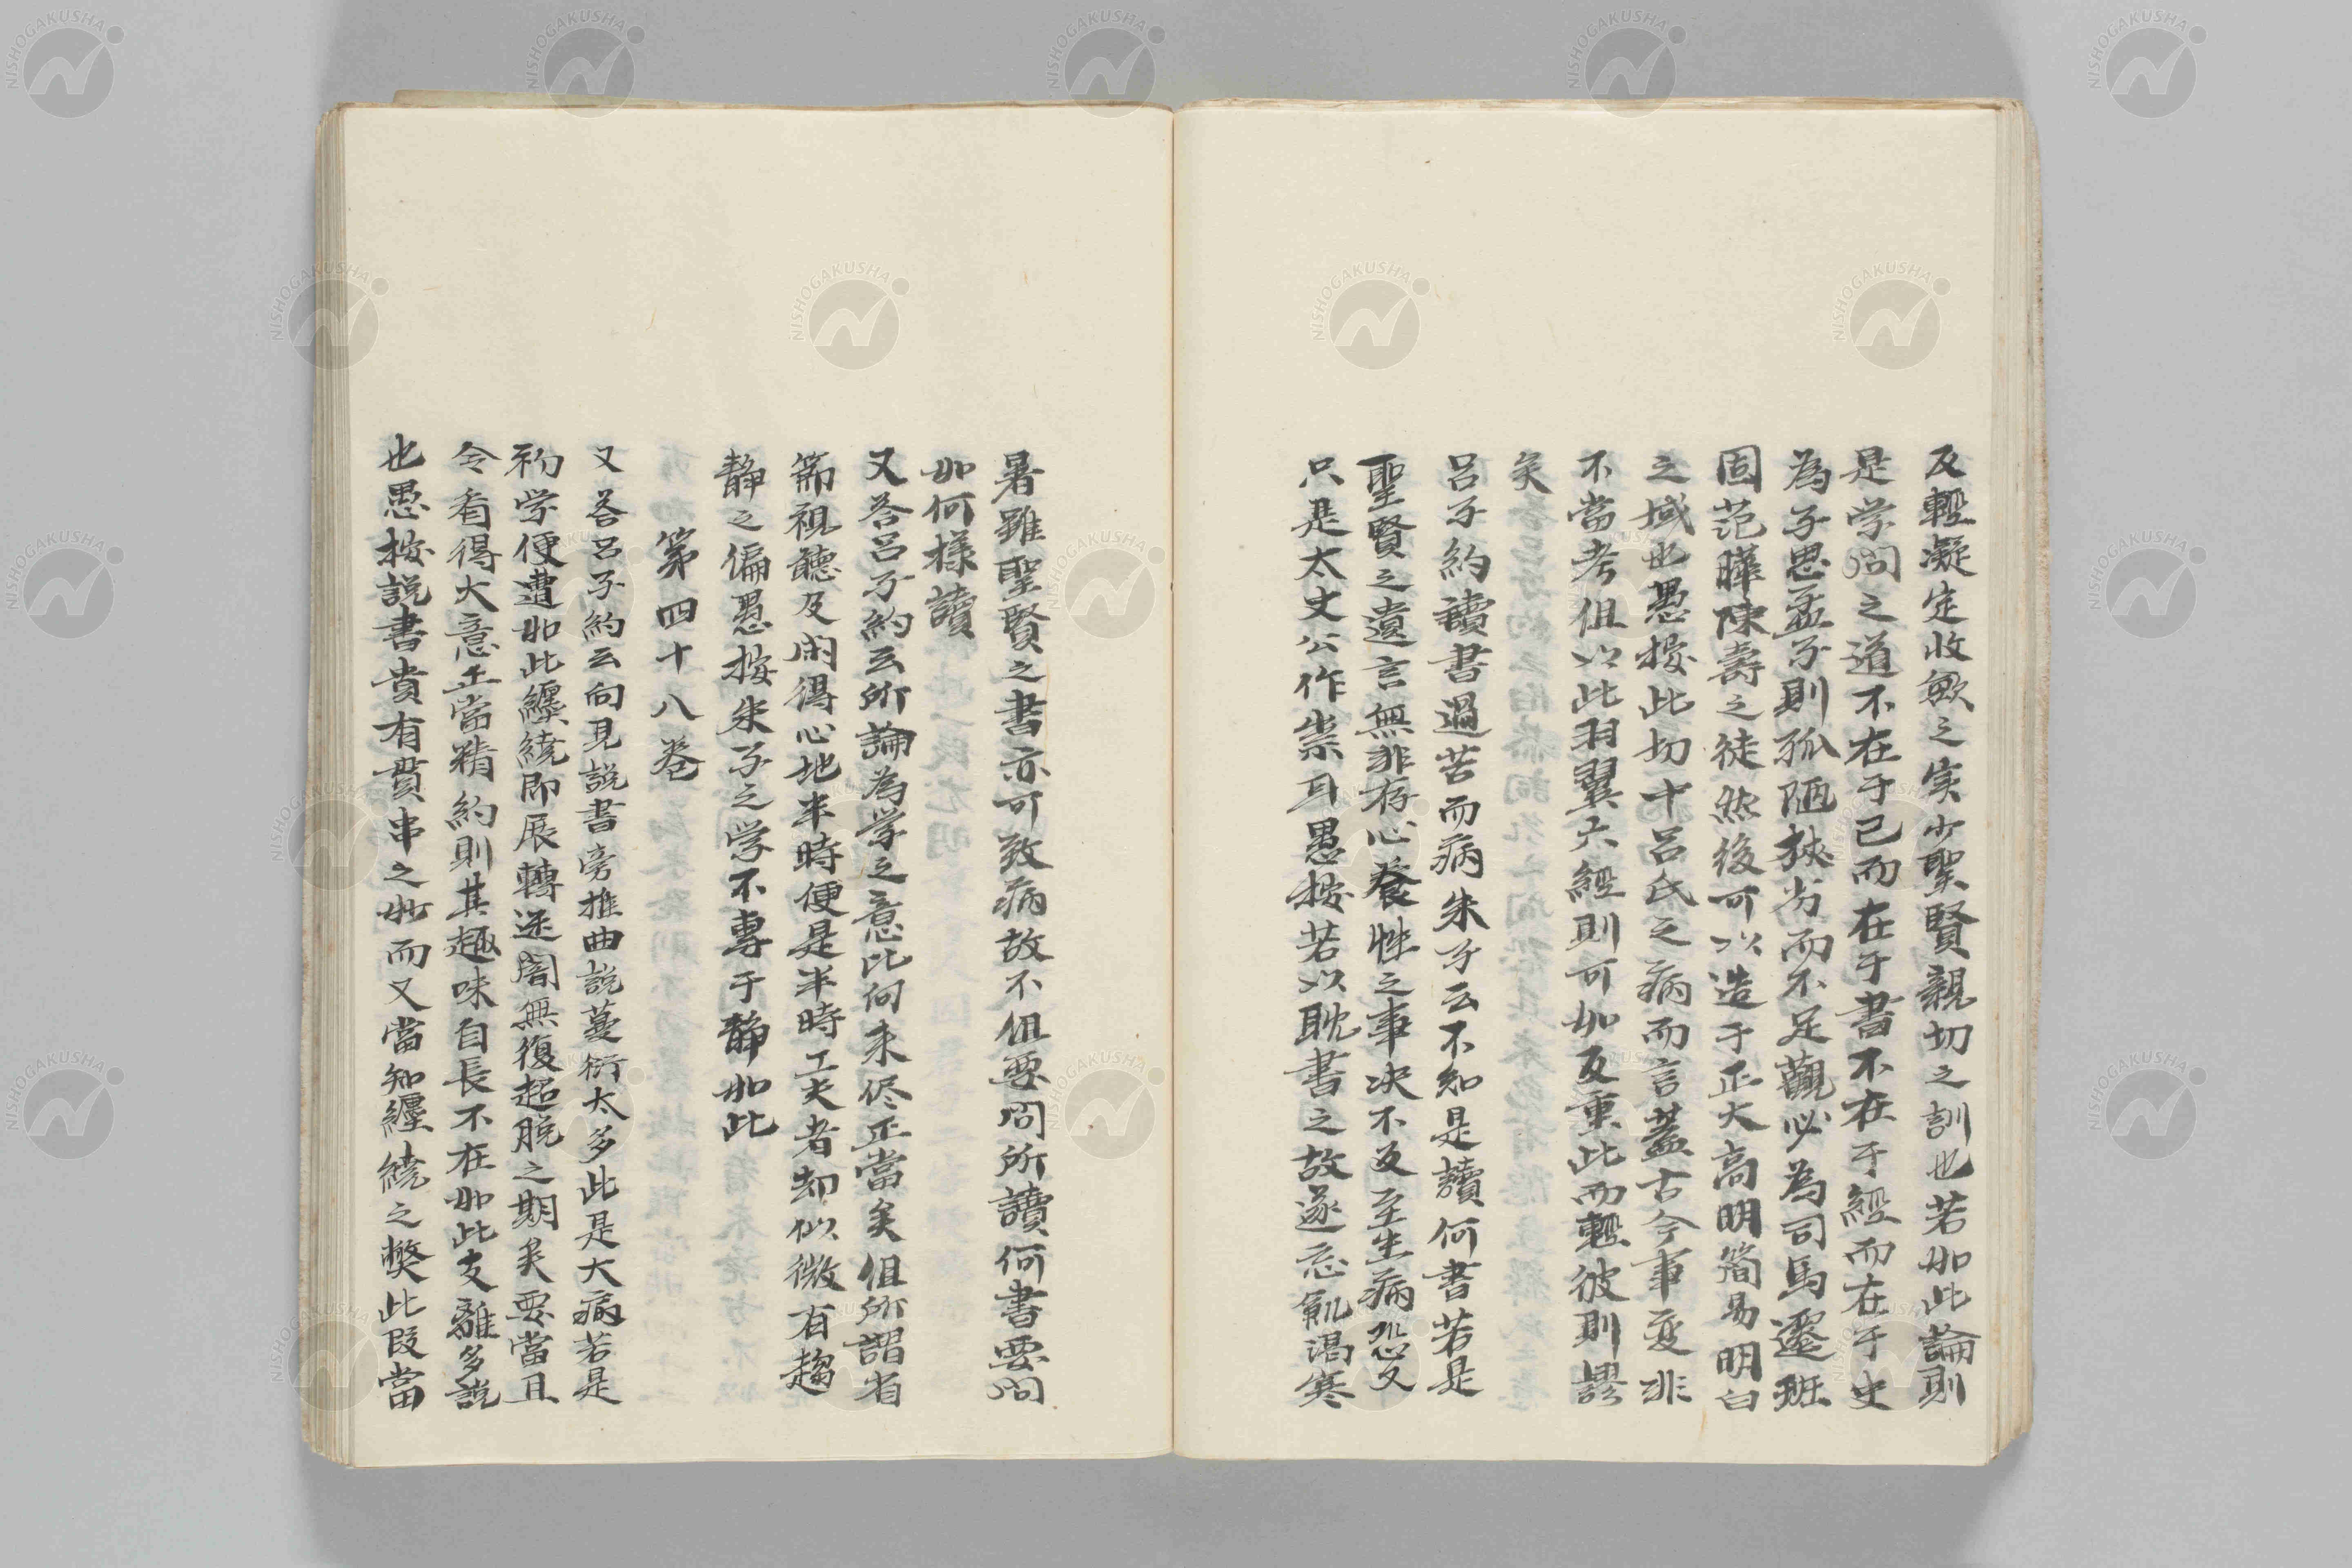 反輕凝定收斂之実少聖賢親切之訓也若如此論則
是学问之道不在于己而在于書不在于經而在于史
為子思孟子則孤陋狹劣而不足觀必為司馬遷班
固范曄陳壽之徒然後可以造于正大高明簡易明白
之域也愚按此切中呂氏之病而言蓋古今事変非
不當考但以此羽翼六經則可如反重此而輕彼則謬
矣
呂子約讀書過苦而病朱子云不知是讀何書若是
聖賢之遺言無非存心養性之事决不反至生病恐又
只是太史公作祟耳愚按若以耽書之故遂忘飢渴寒
暑雖聖賢之書亦可致病故不但要问所讀何書要问
如何樣讀
又答呂子約云所論為学之意比何未侭正當矣但所謂省
節視聽及闲得心地半時便是半時工夫者却似微有趨
靜之偏愚按朱子之学不專于靜如此
第四十八卷
又答呂子約云向見説書旁推曲説蔓衍太多此是大病若是
初学便遭如此纏繞即展轉迷闇無復超脱之期矣要當且
令看得大意正當精約則其趣味自長不在如此支離多説
也愚按説書貴有貫串之妙而又當知纏繞之弊此段當
NISHOGAKUSHA